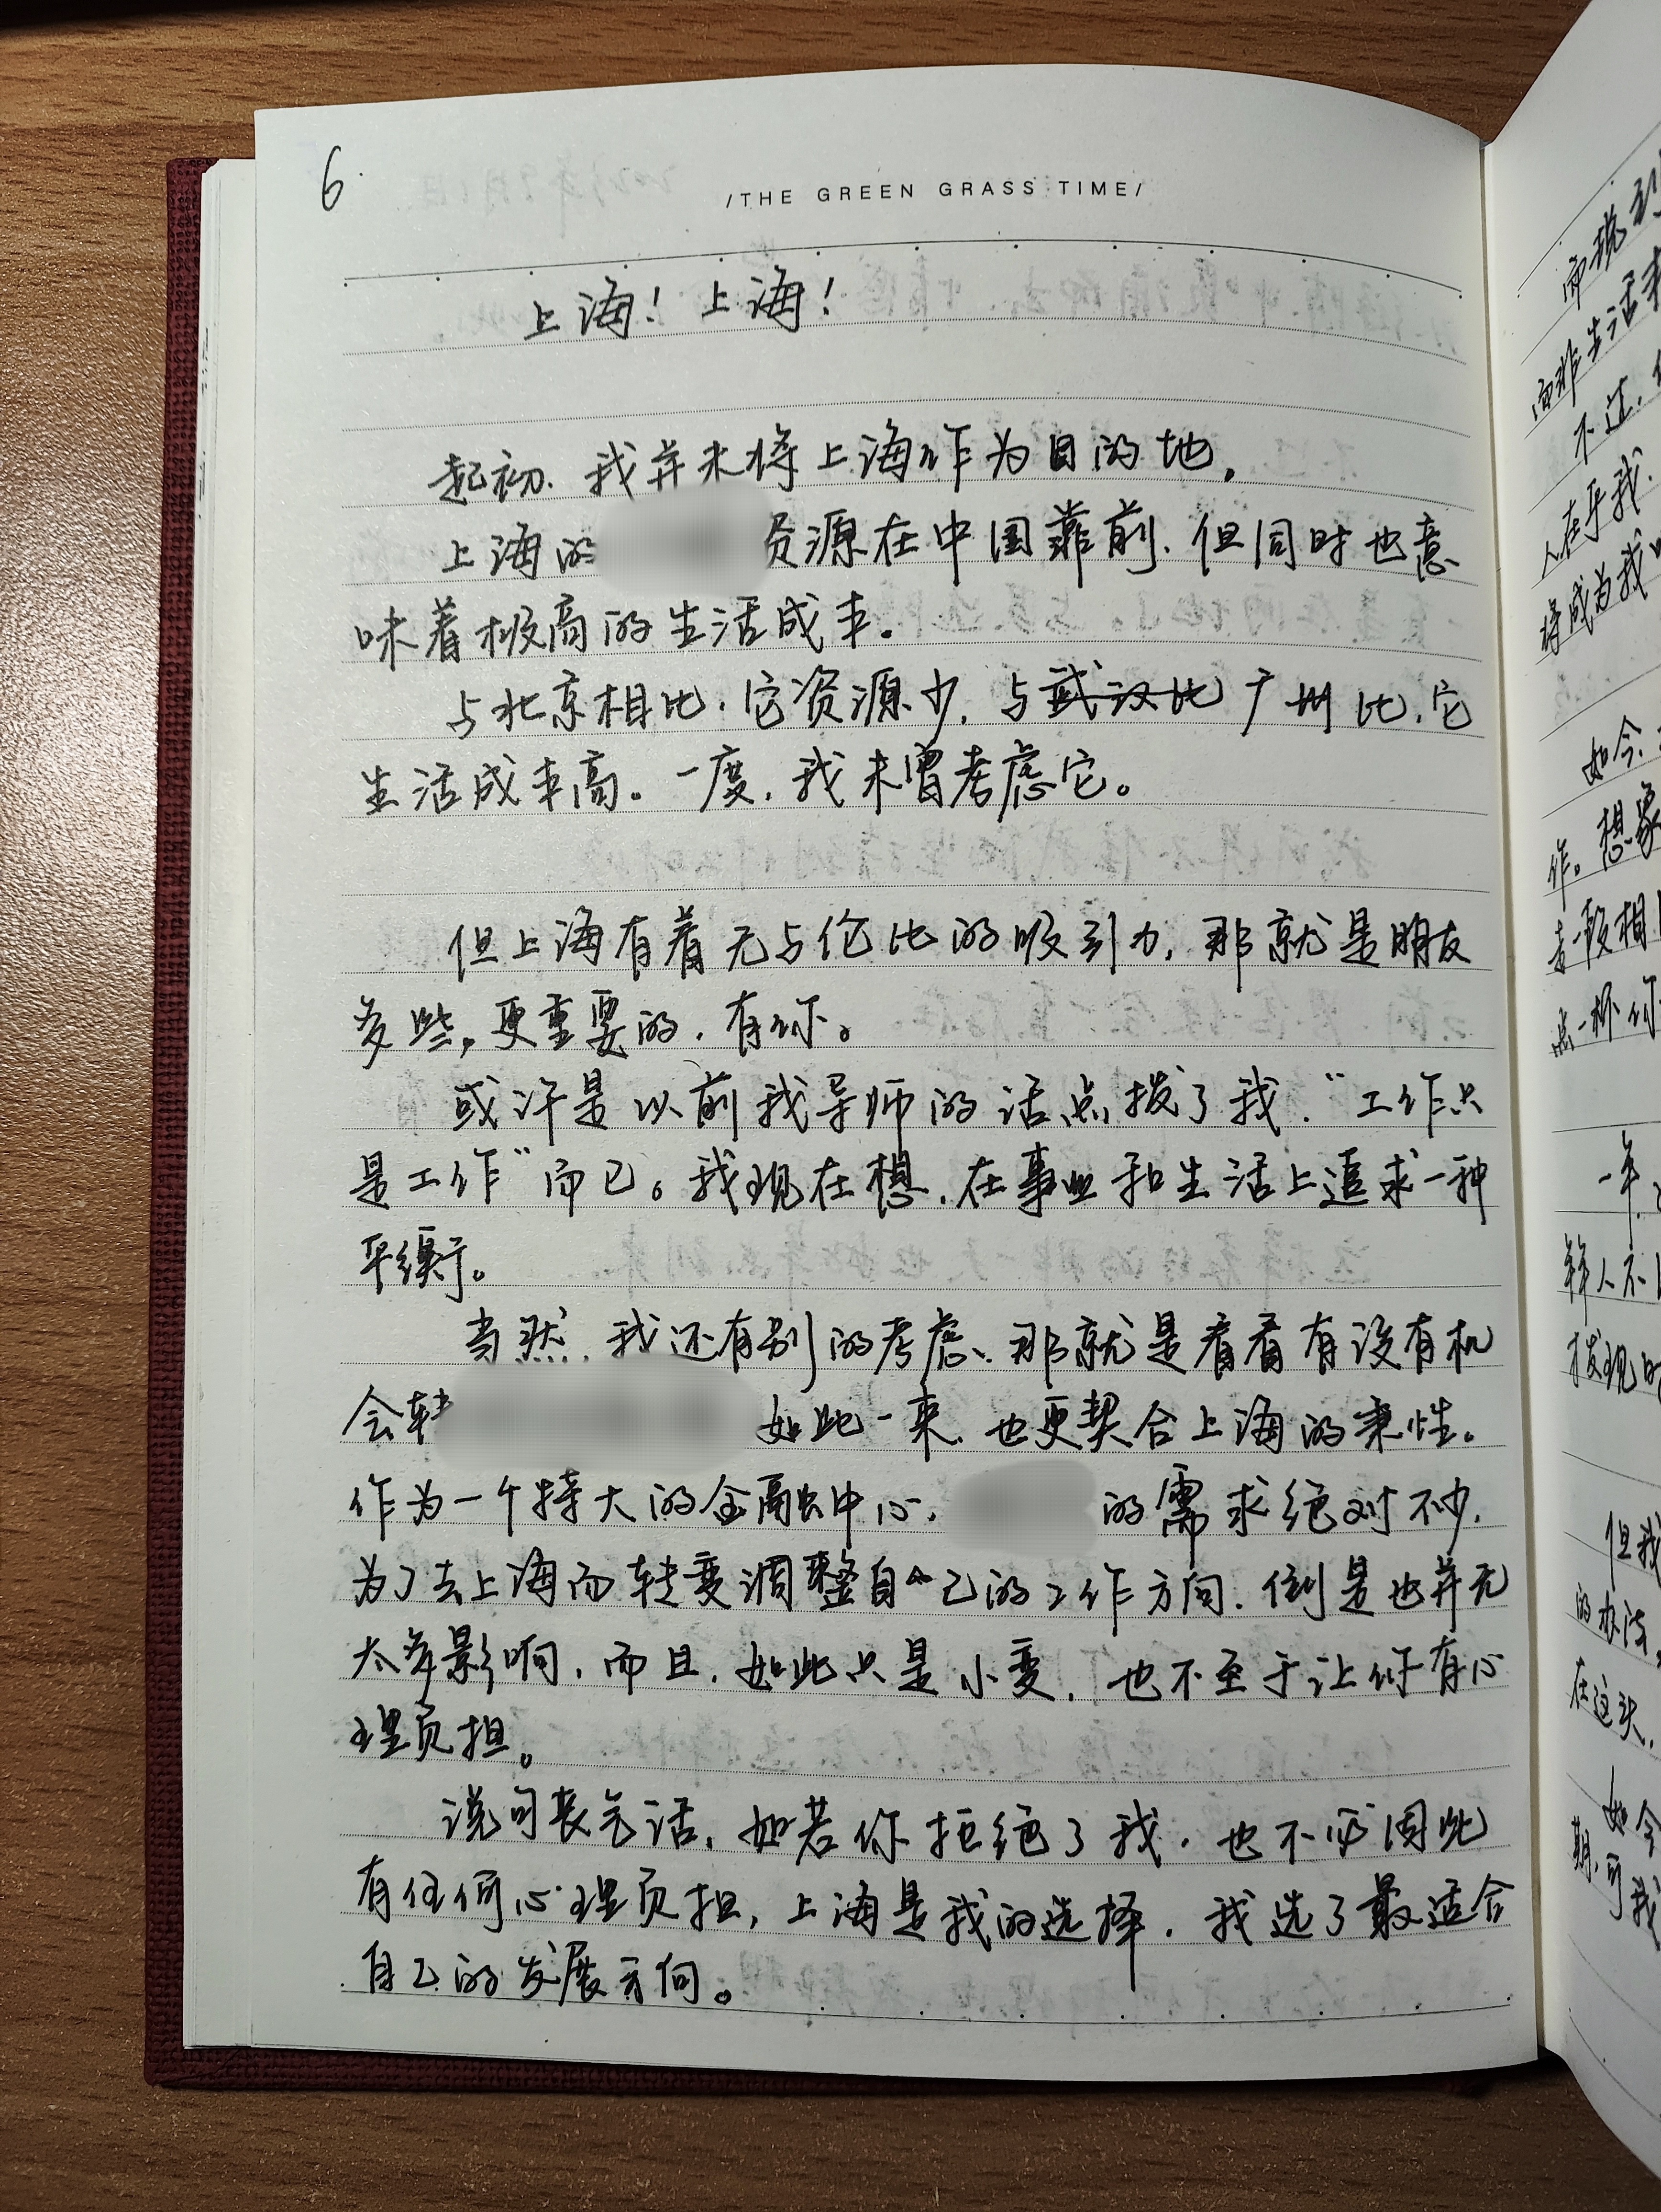 6.
/THE GREEN GRASS TIME/
上海！上海！
起初、我并未将上海作为目的地。
上海的 资源在中国靠前、但同时也意
味着极高的生活成本。
与北京相比、它资源少、与武汉比广州比、它
生活成本高。一度、我未曾考虑它。
但上海有着无与伦比的吸引力、那就是朋友
多些，更重要的、有你。
或许是以前我导师的话点拨了我、“工作只
是工作”而已。我现在想、在事业和生活上追求一种
平衡。
当然、我还有别的考虑、那就是看看有没有机
会转 如此一来、也更契合上海的秉性。
作为一个特大的金融中心、 的需求绝对不少、
为了去上海而转变调整自己的工作方向、倒是也并无
太多影响、而且、如此只是小变、也不至于让你有心
理负担。
说句丧气话、如若你拒绝了我、也不必因此
有任何心理负担，上海是我的选择、我选了最适合
自己的发展方向。
而我
而非生活
不过、
人在乎我、
将成为我
如今、
作。想象
去一般相
点一杯你
一年、
释人不
发现
但我
的办法、
在这头、
如今
期、可我